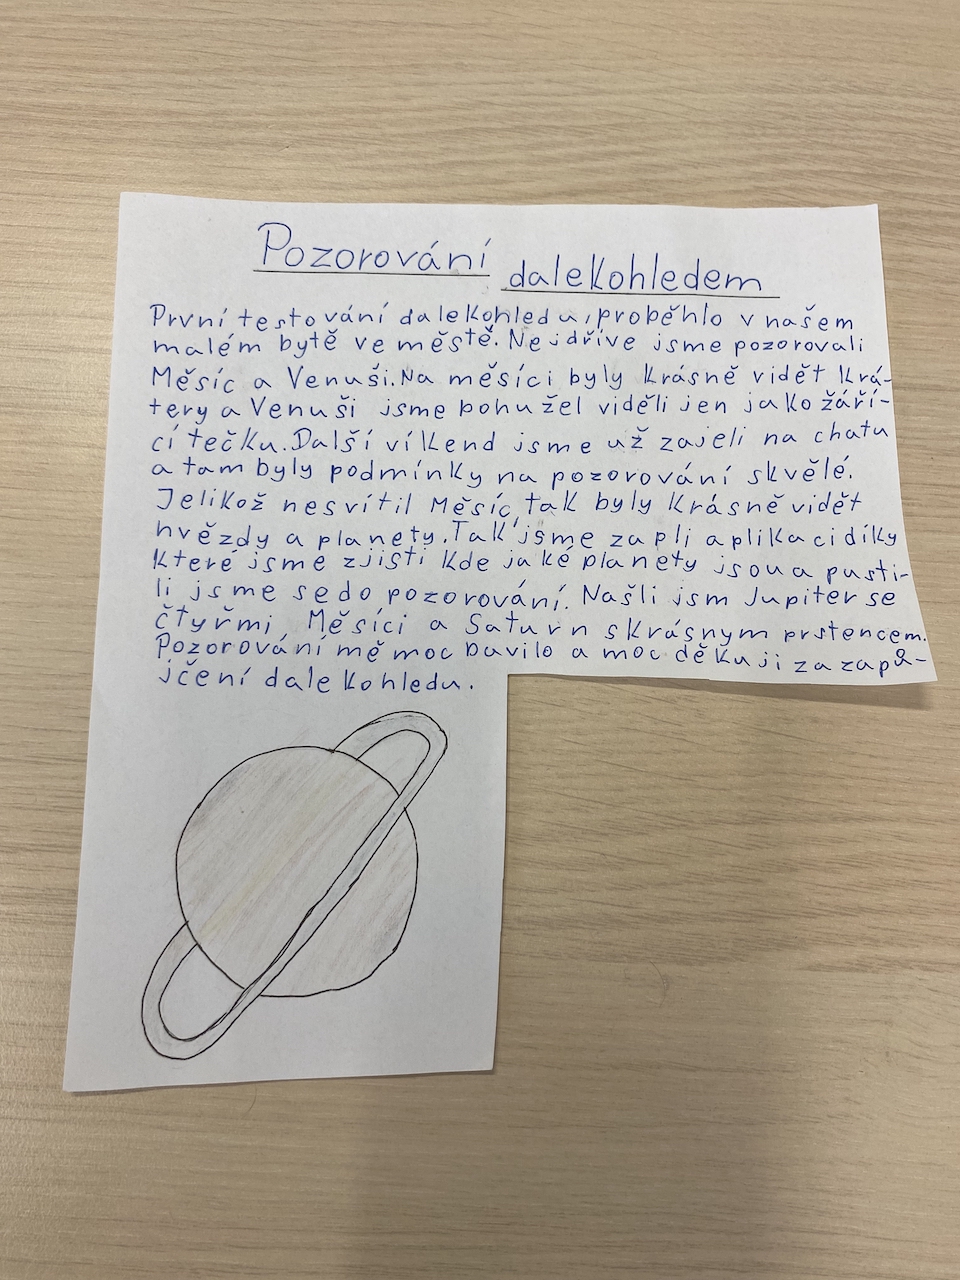 Pozorování dalekohledem
První testování dalekohledu, proběhlo v našem
malém bytě ve městě. Nejdříve jsme pozorovali
Měsíc a Venuši. Na měsíci byly krásně vidět krá-
tery a Venuši jsme bohužel viděli jen jako září-
cí tečku. Další víkend jsme už zajeli na chatu
a tam byly podmínky na pozorování skvělé.
Jelikož nesvítil Měsíc, tak byly krásně vidět
hvězdy a planety. Tak jsme zapli aplikaci díky
které jsme zjisti kde jaké planety jsou a pusti-
li jsme se do pozorování. Našli jsm Jupiter se
čtyřmi Měsíci a Saturn s krásnym prstencem.
Pozorování mě moc bavilo a moc děkuji za zapů-
jčení dalekohledu.